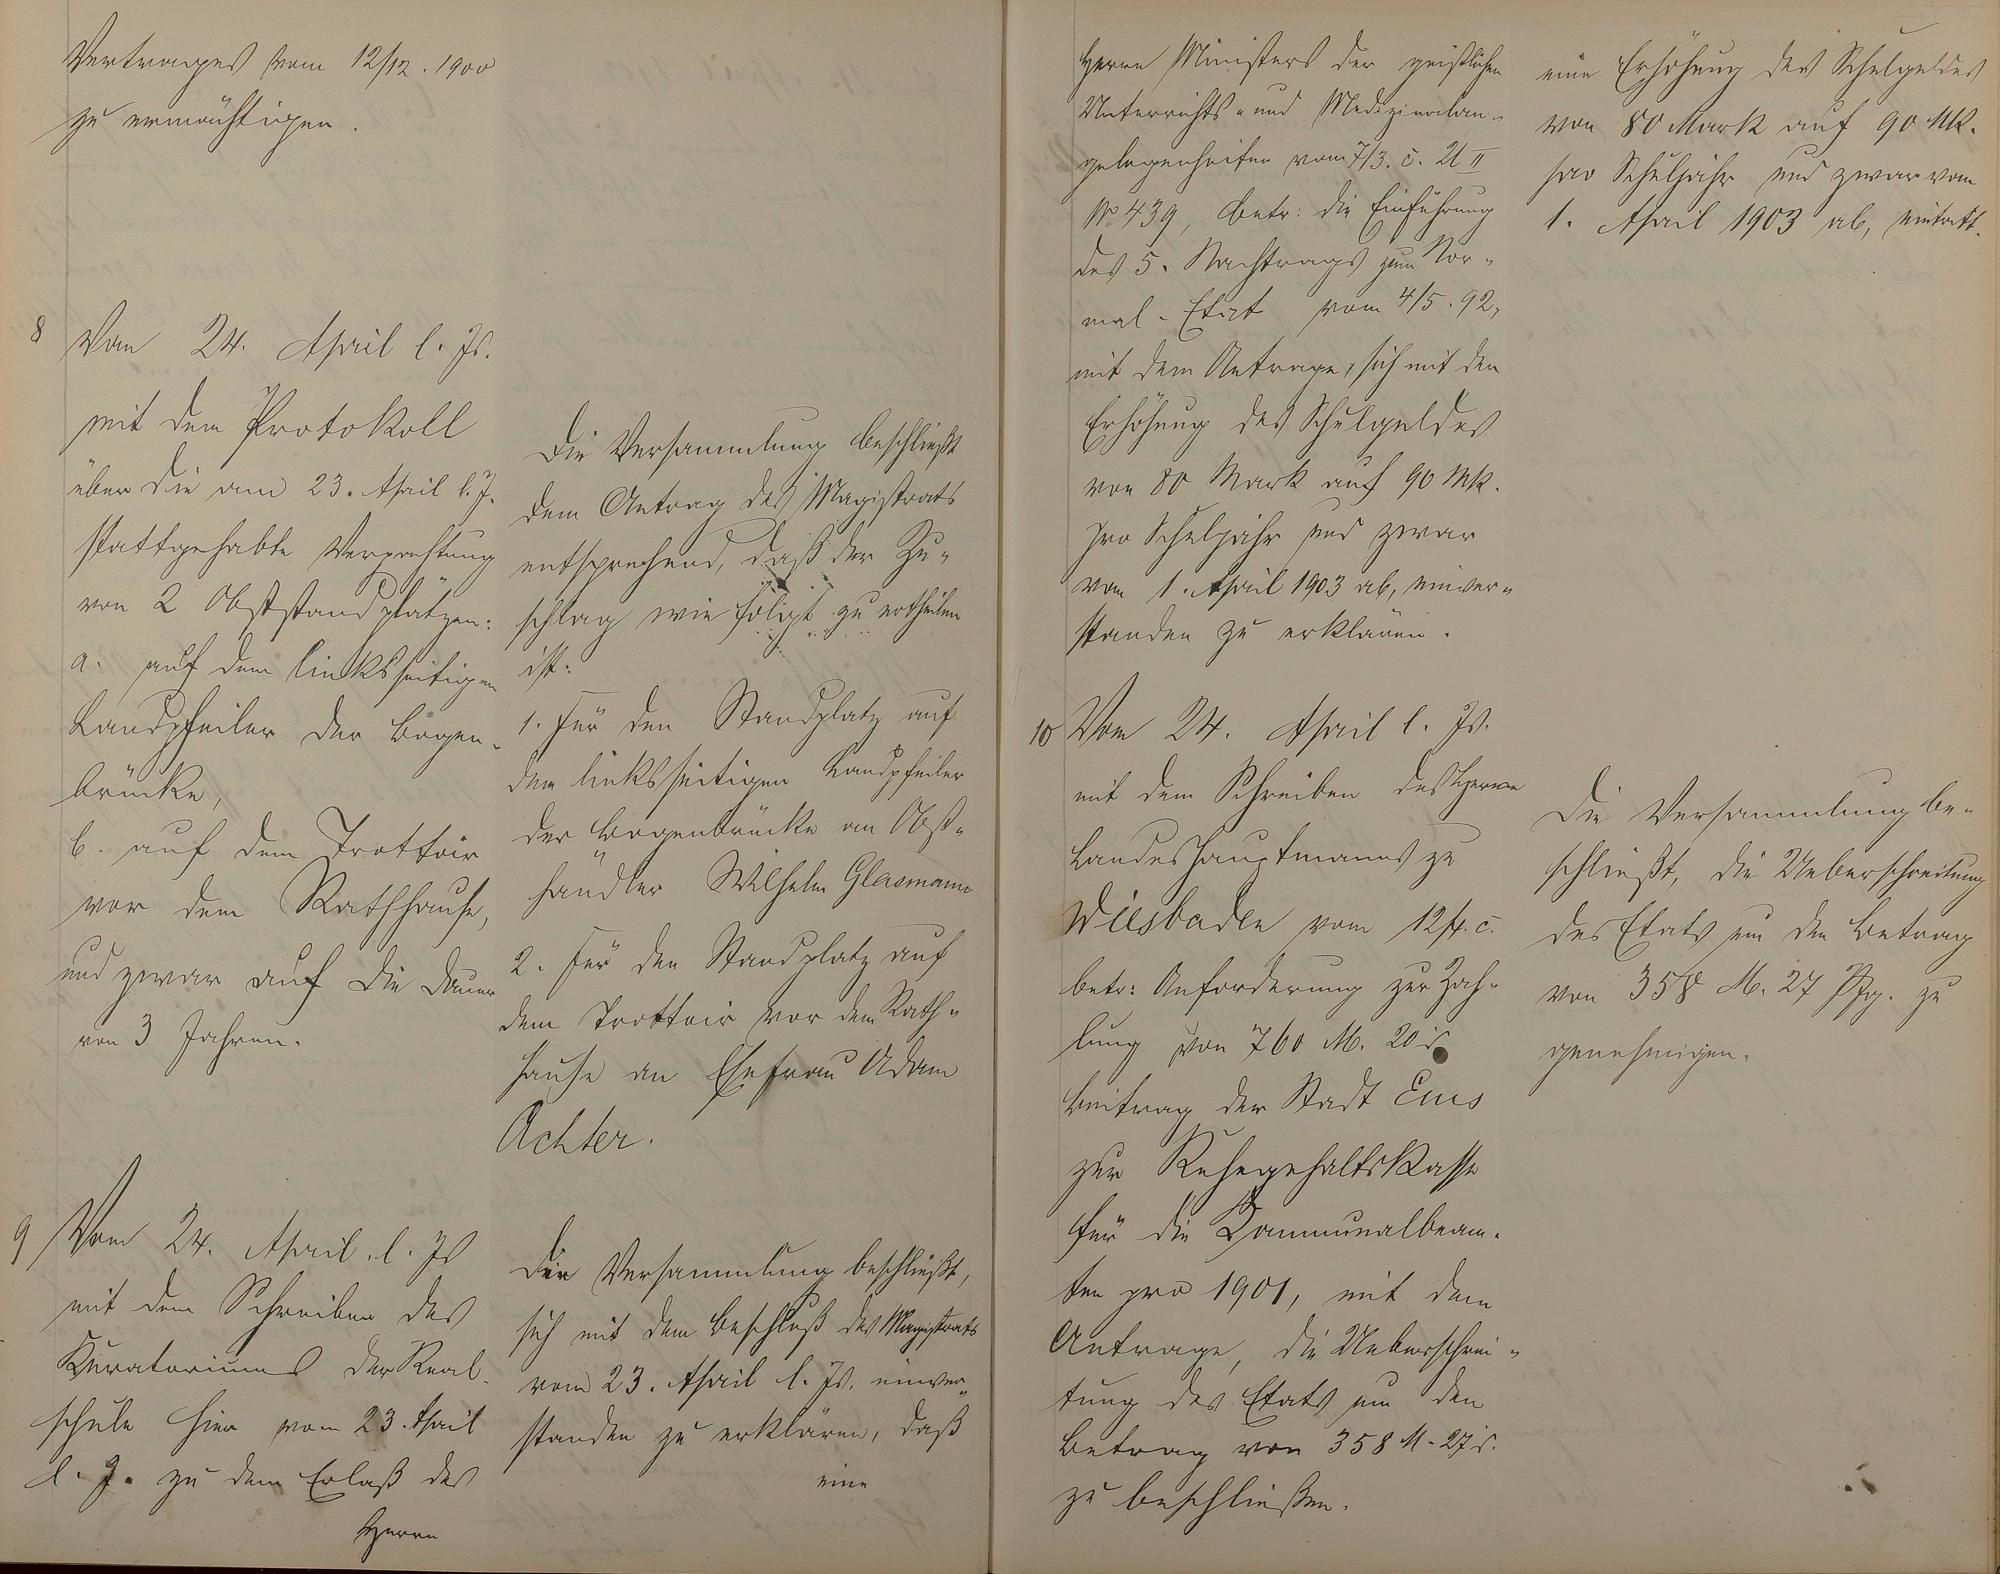 Vertrages vom 12/12. 1900
zu ermächtigen.
8 Vom 24. April l. Js.
mit dem Protokoll
über die am 23. April l. J.
stattgehabte Verpachtung
von 2 Obststandplätzen:
a. auf dem linksseitigen
Landpfeiler der Bogen-
brücke,
b. auf dem Trottoir
vor dem Rathhause,
und zwar auf die Dauer
von 3 Jahren.
Die Versammlung beschließt
dem Antrag des Magistrats
entsprechend, daß der Zu-
schlag wie folgt zu ertheilen
ist:
1. Für den Standplatz auf
dem linksseitigen Landpfeiler
der Bogenbrücke an Obst-
händler Wilhelm Glasmann
2. Für den Standplatz auf
dem Trottoir vor dem Rath-
hause an Ehefrau Adam
Achter.
9 Vom 24. April l. Js
mit dem Schreiben des
Kuratoriums der Real-
schule hier vom 23. April
l. J. zu dem Erlaß des
Herrn
Die Versammlung beschließt,
sich mit dem Beschluß des Magistrats
vom 23. April l. Js. einver-
standen zu erklären, daß
eine
Herrn Ministers der geistlichen
Unterrichts- und Medizinalan-
gelegenheiten vom 7/3. c. U II
No 439, betr: die Einführung
des 5. Nachtrags zum Nor-
mal-Etat vom 4/5. 92,
mit dem Antrage, sich mit den
Erhöhung des Schulgeldes
von 80 Mark auf 90 Mk.
pro Schuljahr und zwar
vom 1. April 1903 ab, einver-
standen zu erklären.
eine Erhöhung des Schulgeldes
von 80 Mark auf 90 Mk.
pro Schuljahr und zwar vom
1. April 1903 ab, eintritt.
10 Vom 24. April l. Js.
mit dem Schreiben des Herrn
Landeshauptmanns zu
Wiesbaden vom 12/4. c.
betr: Anforderung zur Zah-
lung von 760 M. 20 d
Beitrag der Stadt Ems
zur Ruhegehaltskasse
für die Kommunalbeam-
ten pro 1901, mit dem
Antrage, die Ueberschrei-
tung des Etats um den
Betrag von 358 M. 27 d.
zu beschließen.
Die Versammlung be-
schließt, die Ueberschreitung
des Etats um den Betrag
von 358 M. 27 Pfg. zu
genehmigen.